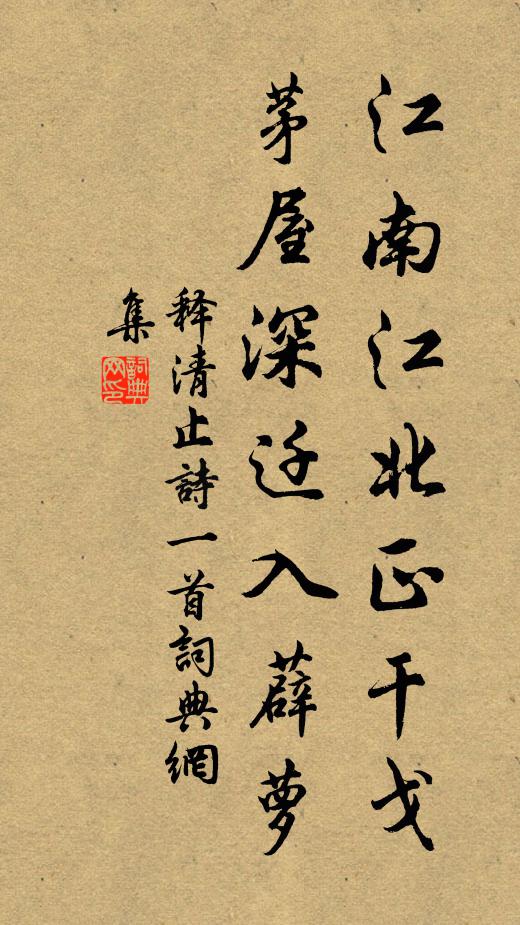 江南江北正干戈
茅屋深迁入薜萝
释清止詩一首詞典網
集
詞典
网印